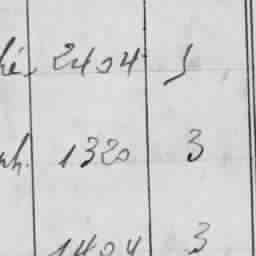 hé. 2404
nh. 1320 3
1404 3